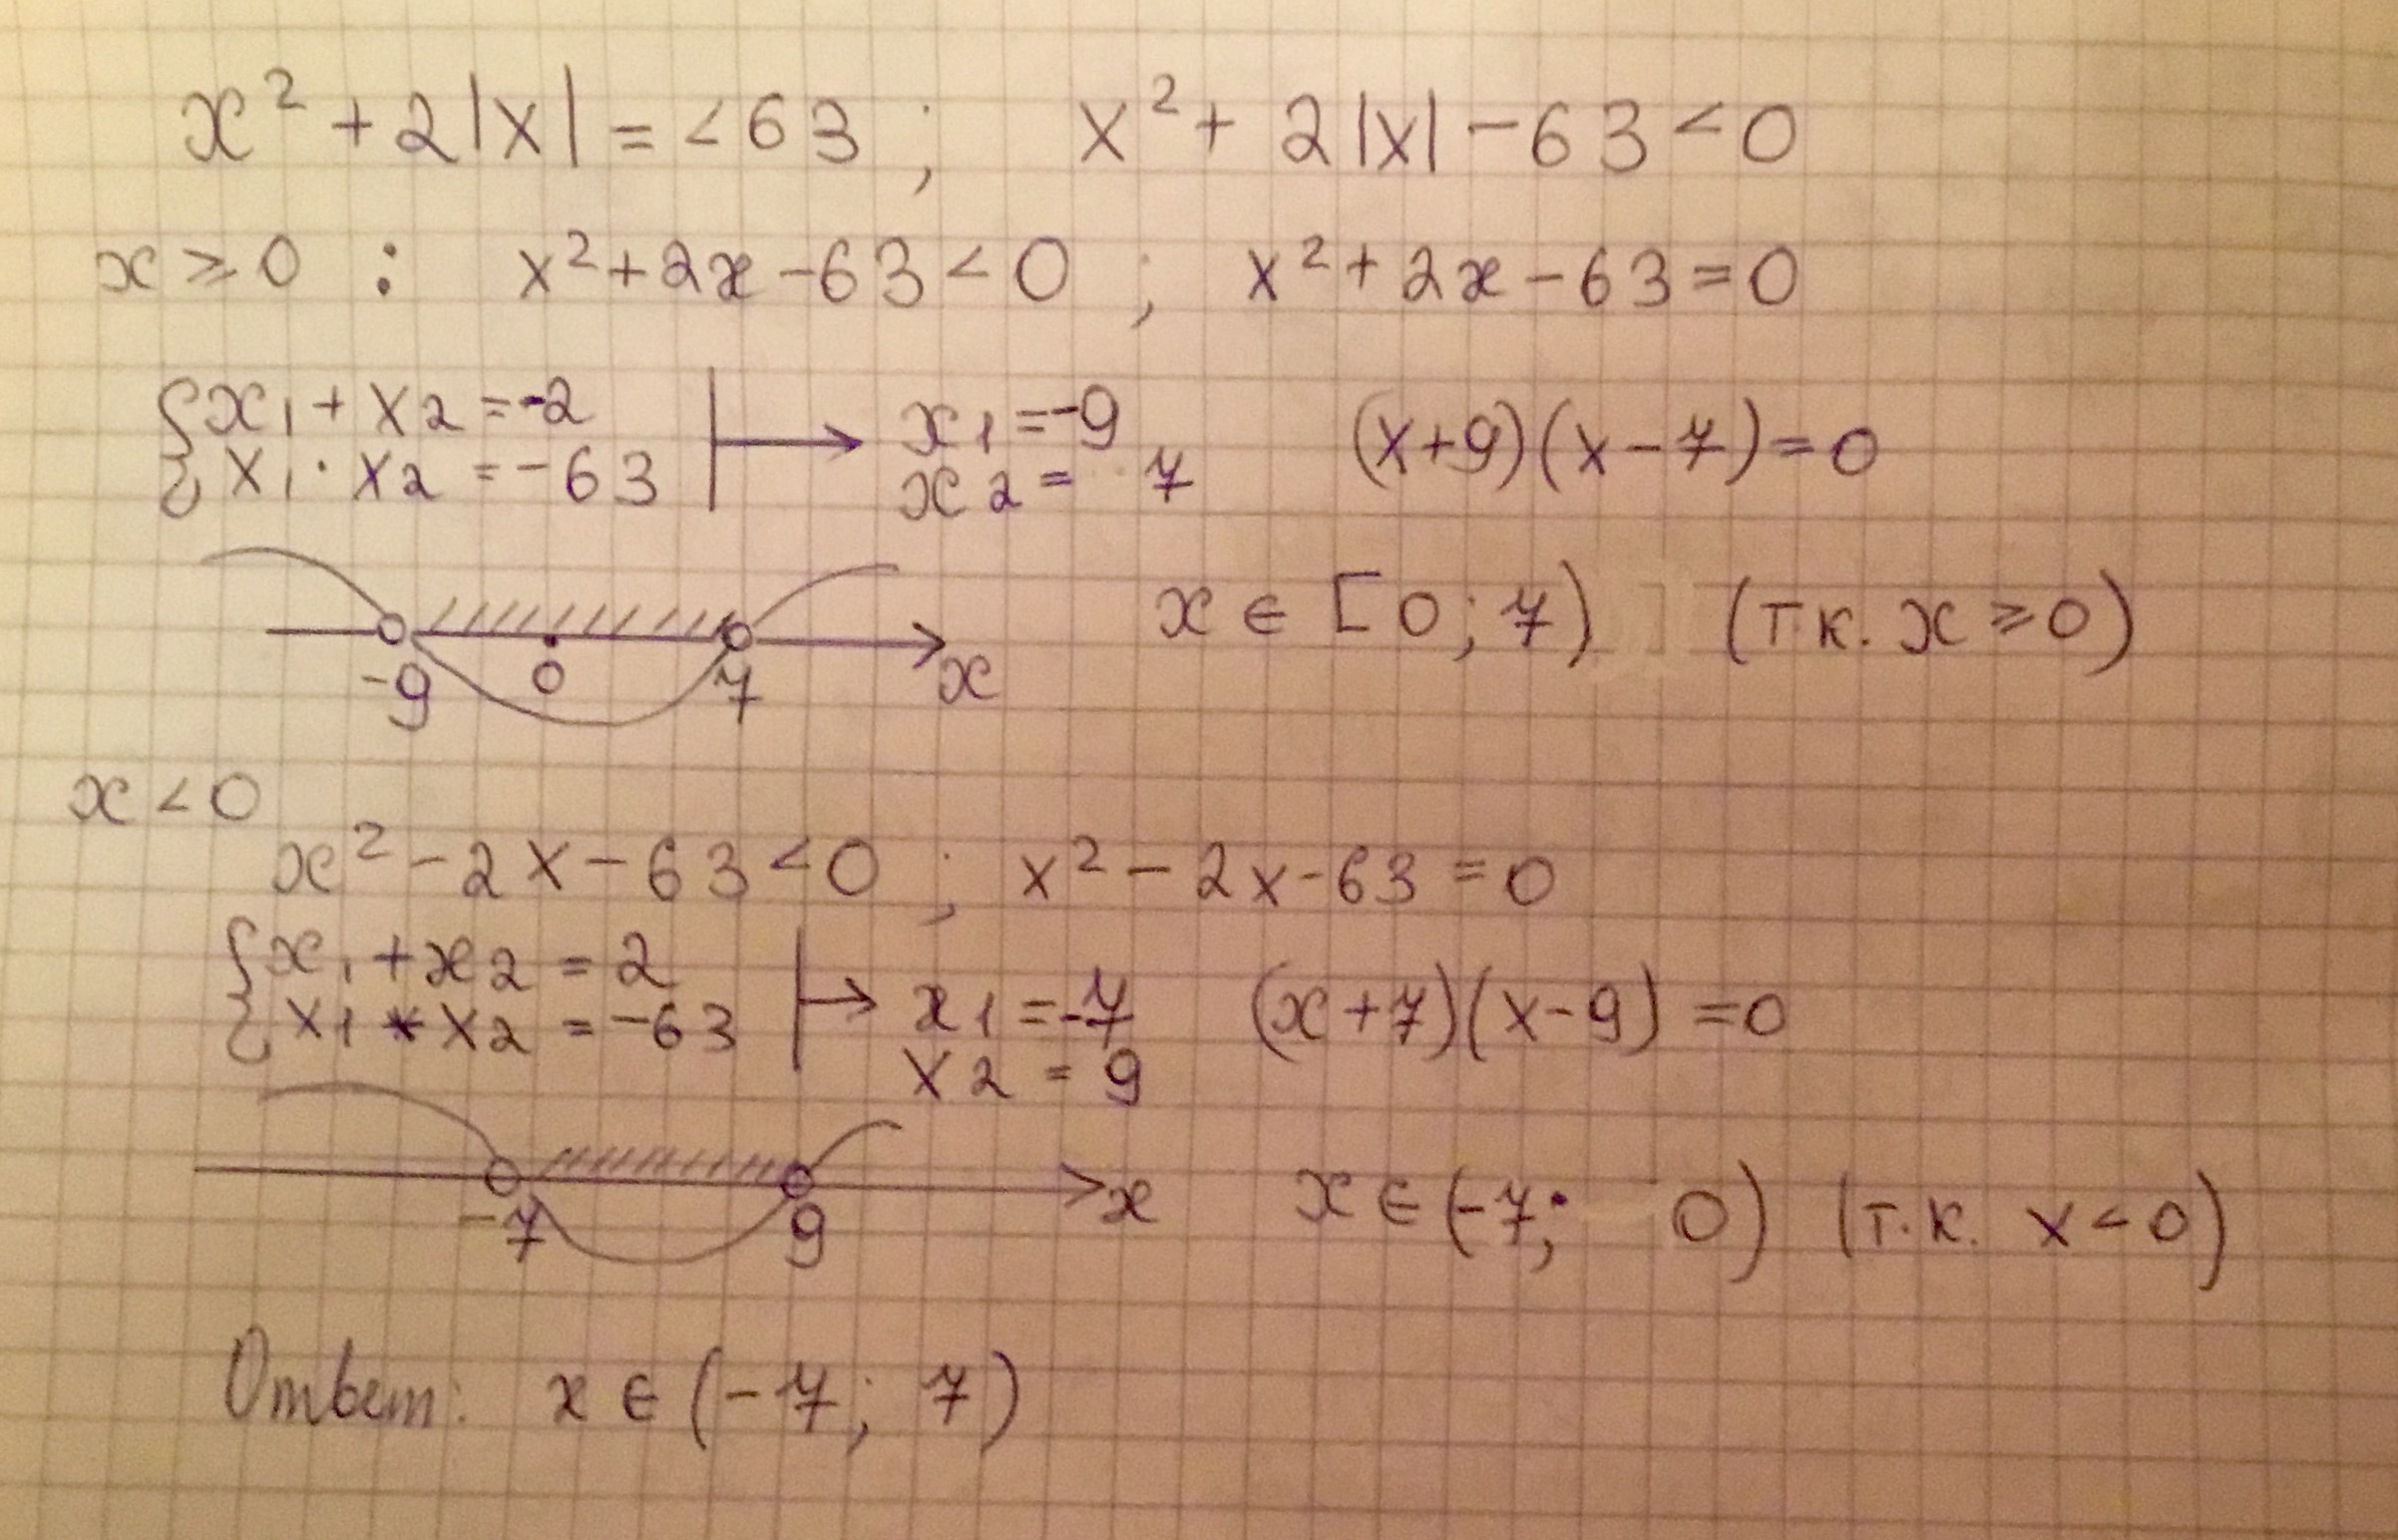 x² + 2|x| = < 63 ; x² + 2|x| - 63 < 0
x ≥ 0 : x² + 2x - 63 < 0 ; x² + 2x - 63 = 0
{ x₁ + x₂ = -2 | → x₁ = -9 (x+9)(x-7) = 0
{ x₁ · x₂ = -63 x₂ = 7
-9 0 7 x x ∈ [0; 7) (т.к. x ≥ 0)
x < 0
x² - 2x - 63 < 0 ; x² - 2x - 63 = 0
{ x₁ + x₂ = 2 | → x₁ = -7 (x+7)(x-9) = 0
{ x₁ * x₂ = -63 x₂ = 9
-7 9 x x ∈ (-7; 0) (т.к. x < 0)
Ответ: x ∈ (-7; 7)